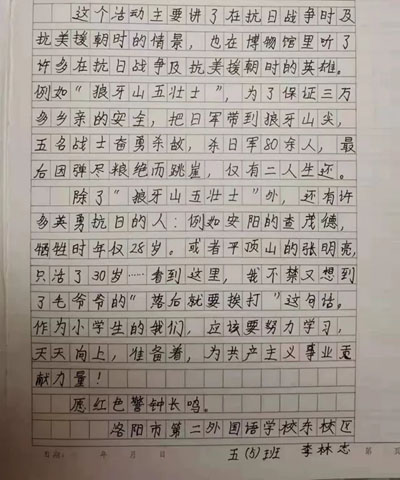 这个活动主要讲了在抗日战争时及
抗美援朝时的情景，也在博物馆里听了
许多在抗日战争及抗美援朝时的英雄。
例如“狼牙山五壮士”，为了保证三万
多乡亲的安全，把日军带到狼牙山尖，
五名战士奋勇杀敌，杀日军80余人，最
后因弹尽粮绝而跳崖，仅有二人生还。
除了“狼牙山五壮士”外，还有许
多英勇抗日的人：例如安阳的查茂德，
牺牲时年仅28岁。或者平顶山的张明亮，
只活了30岁……看到这里，我不禁又想到
了毛爷爷的“落后就要挨打”这句话。
作为小学生的我们，应该要努力学习，
天天向上，准备着，为共产主义事业贡
献力量！
愿红色警钟长鸣。
洛阳市第二外国语学校东校区
日期： 年 月 日 五（5）班 李林志 第 页